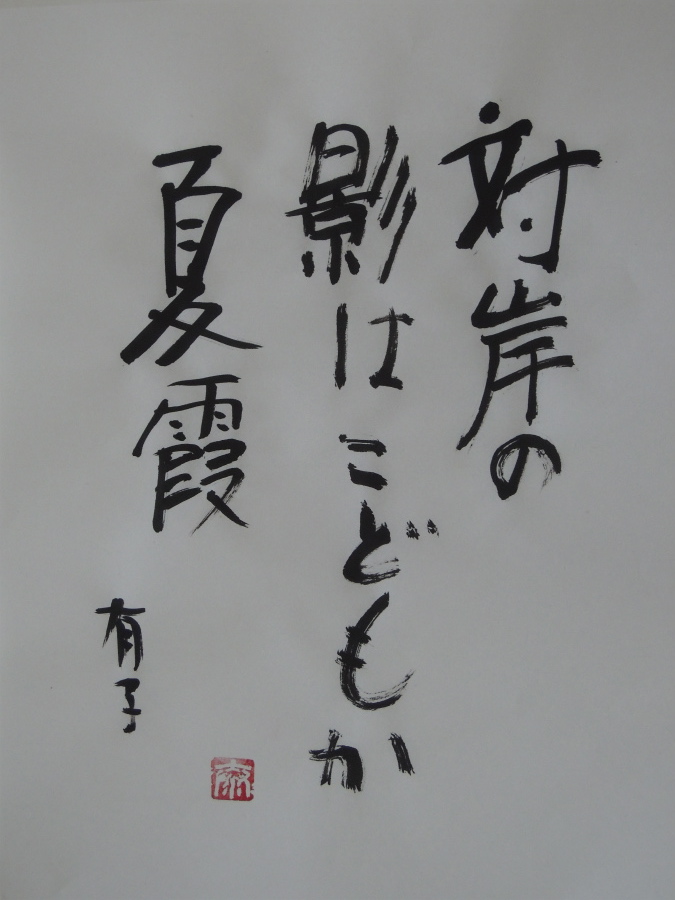 対岸の
影はこどもか
夏霞
有子